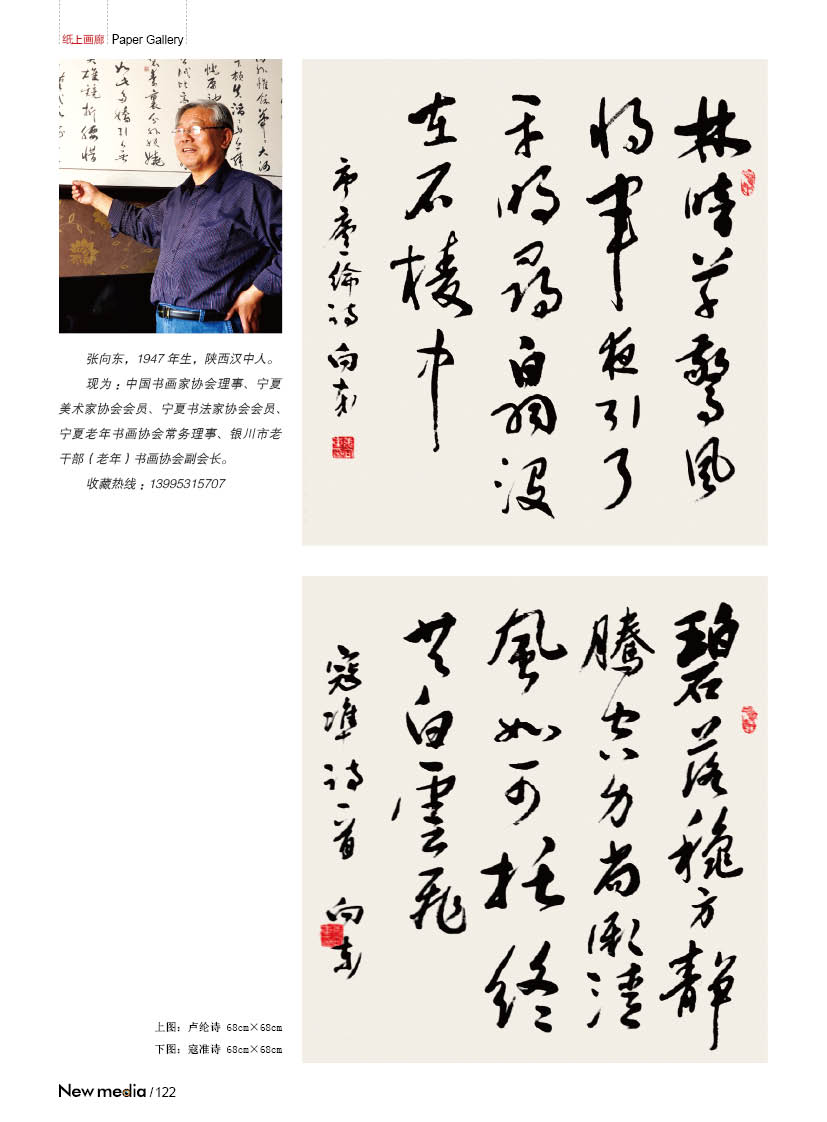 纸上画廊 Paper Gallery
张向东，1947年生，陕西汉中人。
现为：中国书画家协会理事、宁夏
美术家协会会员、宁夏书法家协会会员、
宁夏老年书画协会常务理事、银川市老
干部（老年）书画协会副会长。
收藏热线：13995315707
林暗草驚风
将军夜引弓
平明尋白羽没
在石棱中
纶诗 向东
碧落穐方靜
騰空力尚微清
風如可托終
共白雲飛
寇準诗一首 向东
上图：卢纶诗 68cm×68cm
下图：寇准诗 68cm×68cm
New media / 122